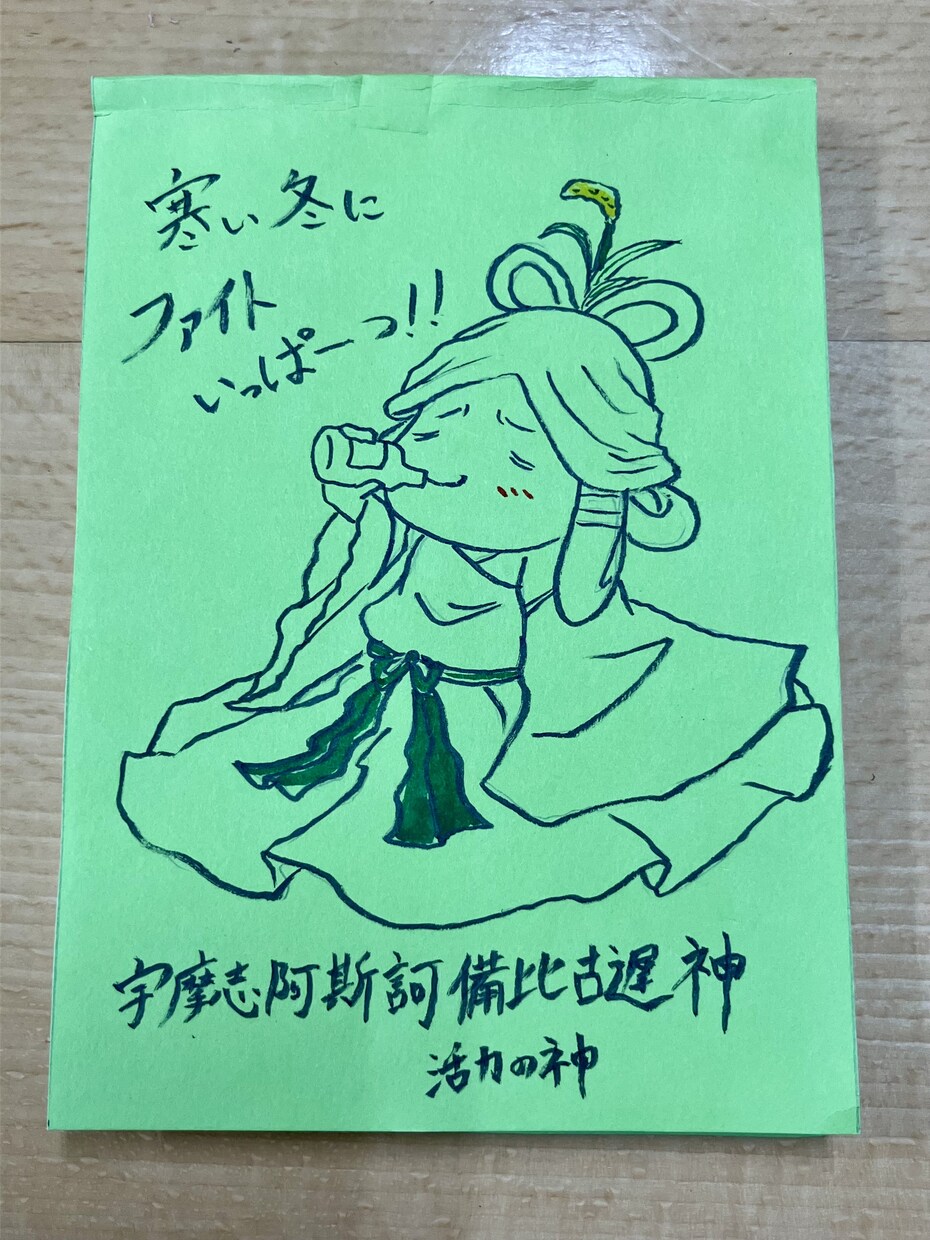 寒い冬に
ファイト
いっぱーつ!!
宇摩志阿斯訶備比古遅神
活力の神